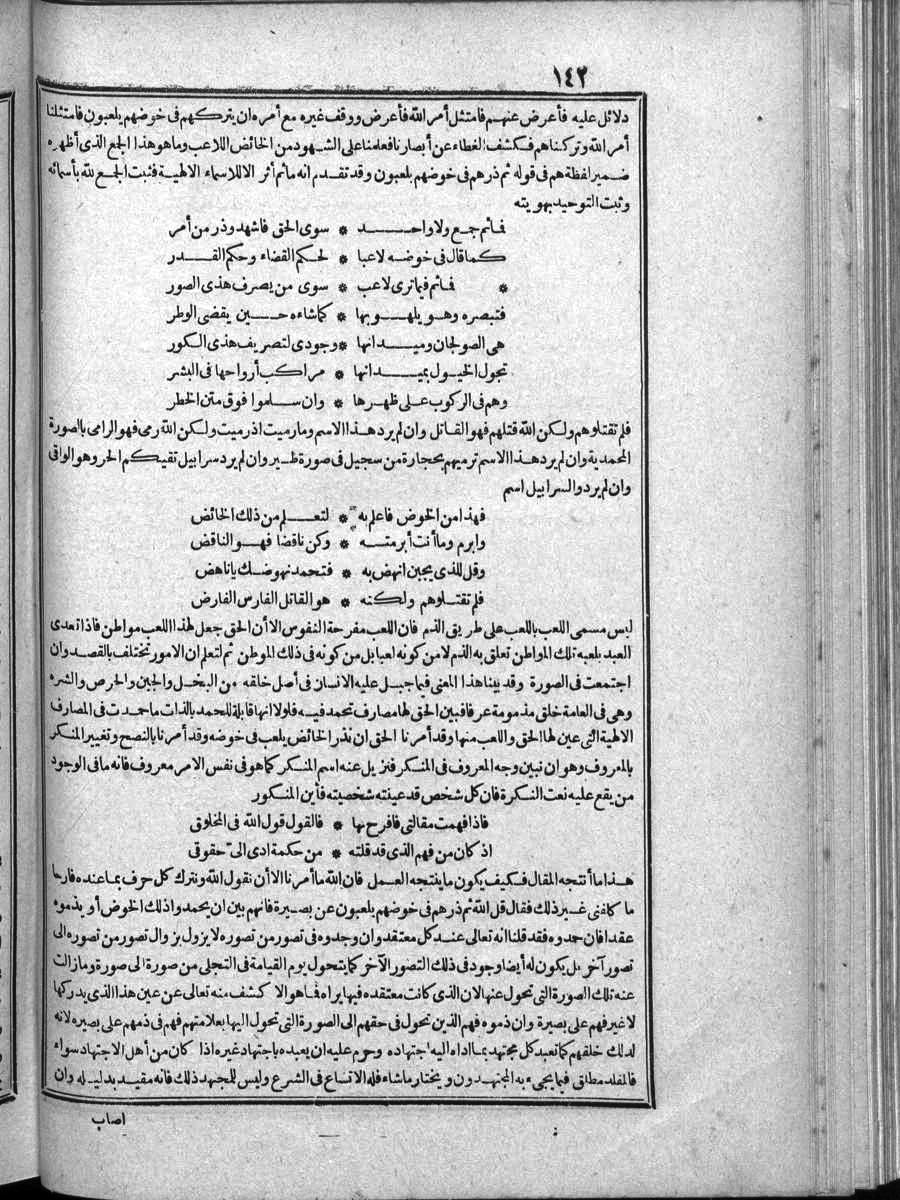 ١٤٢
دلائل عليه فأعرض عنهم فامتثل أمر الله فأعرض ووقف غيره مع أمره ان يتركهم فى خوضهم يلعبون فامتثلنا
أمر الله وتركناهم فكشف الغطاء عن أبصارنا فعلمنا على الشهود من الخائض اللاعب وما هو هذا الجمع الذى أظهره
ضمير لفظة هم فى قوله ثم ذرهم فى خوضهم يلعبون وقد تقدم انه ما ثم أثر الا للاسماء الالهية فثبت الجمع لله بأسمائه
وثبت التوحيد بهويته
فما ثم جمع ولا واحد * سوى الحق فاشهد وذر من أمر
كما قال فى خوضه لاعبا * لحكم القضاء وحكم القدر
* فما ثم فيما ترى لاعب * سوى من يصرف هذى الصور
فتبصره وهو يلهو بها * كما شاءه حين يقضى الوطر
هى الصولجان وميدانها * وجودى لتصريف هذى الكور
تجول الخيول بميدانها * مراكب أرواحها فى البشر
وهم فى الركوب على ظهرها * وان سلموا فوق متن الخطر
فلم تقتلوهم ولكن الله قتلهم فهو القاتل وان لم يرد هذا الاسم وما رميت اذ رميت ولكن الله رمى فهو الرامى بالصورة
المحمدية وان لم يرد هذا الاسم ترميهم بحجارة من سجيل فى صورة طير وان لم يرد سرابيل تقيكم الحر وهو الواقى
وان لم يرد والسرابيل اسم
فهذا من الخوض فاعلم به * لتعلم من ذلك الخائض
وابرم وما أنت أبرمته * وكن ناقضا فهو الناقض
وقل للذى يجبن انهض به * فتحمد نهوضك يا ناهض
فلم تقتلوهم ولكنه * هو القاتل الفارس الفارض
ليس مسمى اللعب باللعب على طريق الذم فان اللعب مفرحة النفوس الا أن الحق جعل لهذا اللعب مواطن فاذا تعدى
العبد بلعبه تلك المواطن تعلق به الذم لا من كونه لعبا بل من كونه فى ذلك الموطن ثم لتعلم ان الامور تختلف بالقصد وان
اجتمعت فى الصورة وقد بينا هذا المعنى فيما جبل عليه الانسان فى أصل خلقه من البخل والجبن والحرص والشره
وهى فى العامة خلق مذمومة عرفا فبين الحق لها مصارف تحمد فيه فلولا انها قابلة للحمد بالذات ما حمدت فى المصارف
الالهية التى عين لها الحق واللعب منها وقد أمرنا الحق ان نذر الخائض يلعب فى خوضه وقد أمرنا بالنصح وتغيير المنكر
بالمعروف وهو ان نبين وجه المعروف فى المنكر فنزيل عنه اسم المنكر كما هو فى نفس الامر معروف فانه ما فى الوجود
من يقع عليه نعت النكرة فان كل شخص قد عينته شخصيته فأين المنكور
فاذا فهمت مقالتى فافرح بها * فالقول قول الله فى المخلاوق
اذ كان من فهم الذى قد قلته * من حكمة ادى الىّ حقوقى
هذا ما أنتجه المقال فكيف يكون ما ينتجه العمل فان الله ما أمرنا الا أن نقول الله ونترك كل حرف بما عنده فارحا
ما كلفنى غير ذلك فقال قل الله ثم ذرهم فى خوضهم يلعبون عن بصيرة فانهم بين ان يحمدوا ذلك الخوض أو يذموه
عقدا فان حمدوه فقد قلنا انه تعالى عند كل معتقد وان وجدوه فى تصور من تصوره لا يزول بزوال تصور من تصوره الى
تصور آخر بل يكون له أيضا وجود فى ذلك التصور الآخر كما يتحول يوم القيامة فى التجلى من صورة الى صورة وما زالت
عنه تلك الصورة التى تحول عنها لان الذى كانت معتقده فيها يراه فما هو الا كشف منه تعالى عن عين هذا الذى يدركها
لا غير فهم على بصيرة وان ذموه فهم الذين تحول فى حقهم الى الصورة التى تحول اليها بعلامتهم فهم فى ذمهم على بصيره لانه
لذلك خلقهم كما تعبد كل مجتهد بما اداه اليه اجتهاده وحرم عليه ان يعبده باجتهاد غيره اذا كان من أهل الاجتهاد سواء
فالمقلد مطلق فيما يجىء به المجتهدون ويختار ما شاء فله الاتساع فى الشرع وليس للمجتهد ذلك فانه مقيد بدليله وان
اصاب